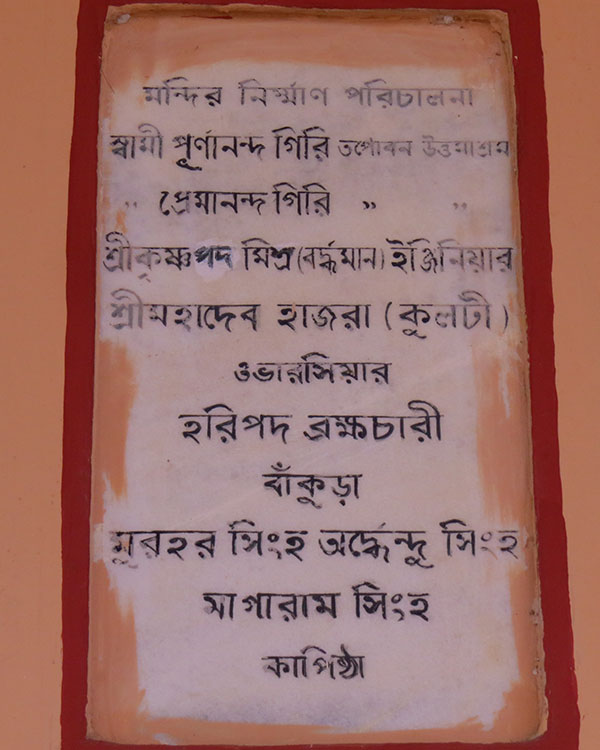 মন্দির নির্ম্মাণ পরিচালনা
স্বামী পূর্ণানন্দ গিরি তপোবন উত্তমাশ্রম
„ প্রেমানন্দ গিরি „ „
শ্রীকৃষ্ণপদ মিশ্র (বর্দ্ধমান) ইঞ্জিনিয়ার
শ্রীমহাদেব হাজরা (কুলটী)
ওভারসিয়ার
হরিপদ ব্রহ্মচারী
বাঁকুড়া
মুরহর সিংহ অর্দ্ধেন্দু সিংহ
মাগারাম সিংহ
কাপিষ্ঠা